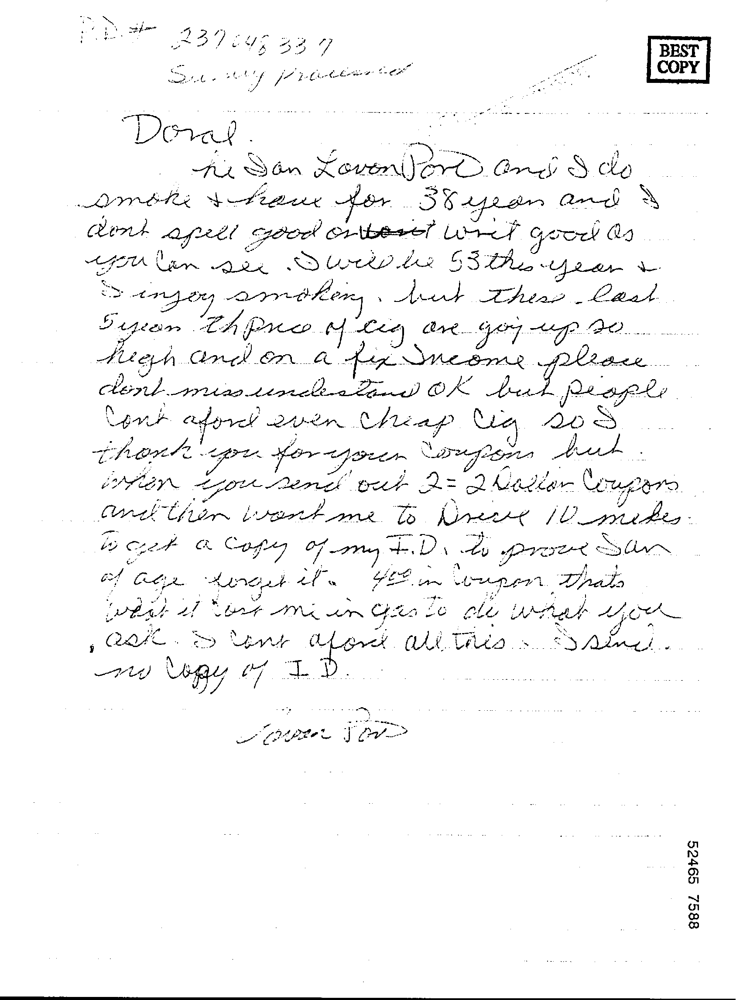 P.D. # 237048337
BEST
COPY
Doral.
hi I am Lovon Pord and I do
smoke + have for 38 year and I
dont spell good or writ good as
you can see. I will be 53 this year +
I injoy smoking. but these last
5 year th price of cig are goi up so
high and on a fix income please
dont missunderstand OK but people
cant aford even cheap cig so I
thank you for your coupons but
when you send out 2 = 2 Dollar Coupons
and then want me to Drive 10 miles
to get a copy of my I.D. to prove I am
of age forget it. 4.00 in coupon thats
what it cost me in gas to do what you
ask. I cant aford all this. I send
no copy of I D.
52465 7588